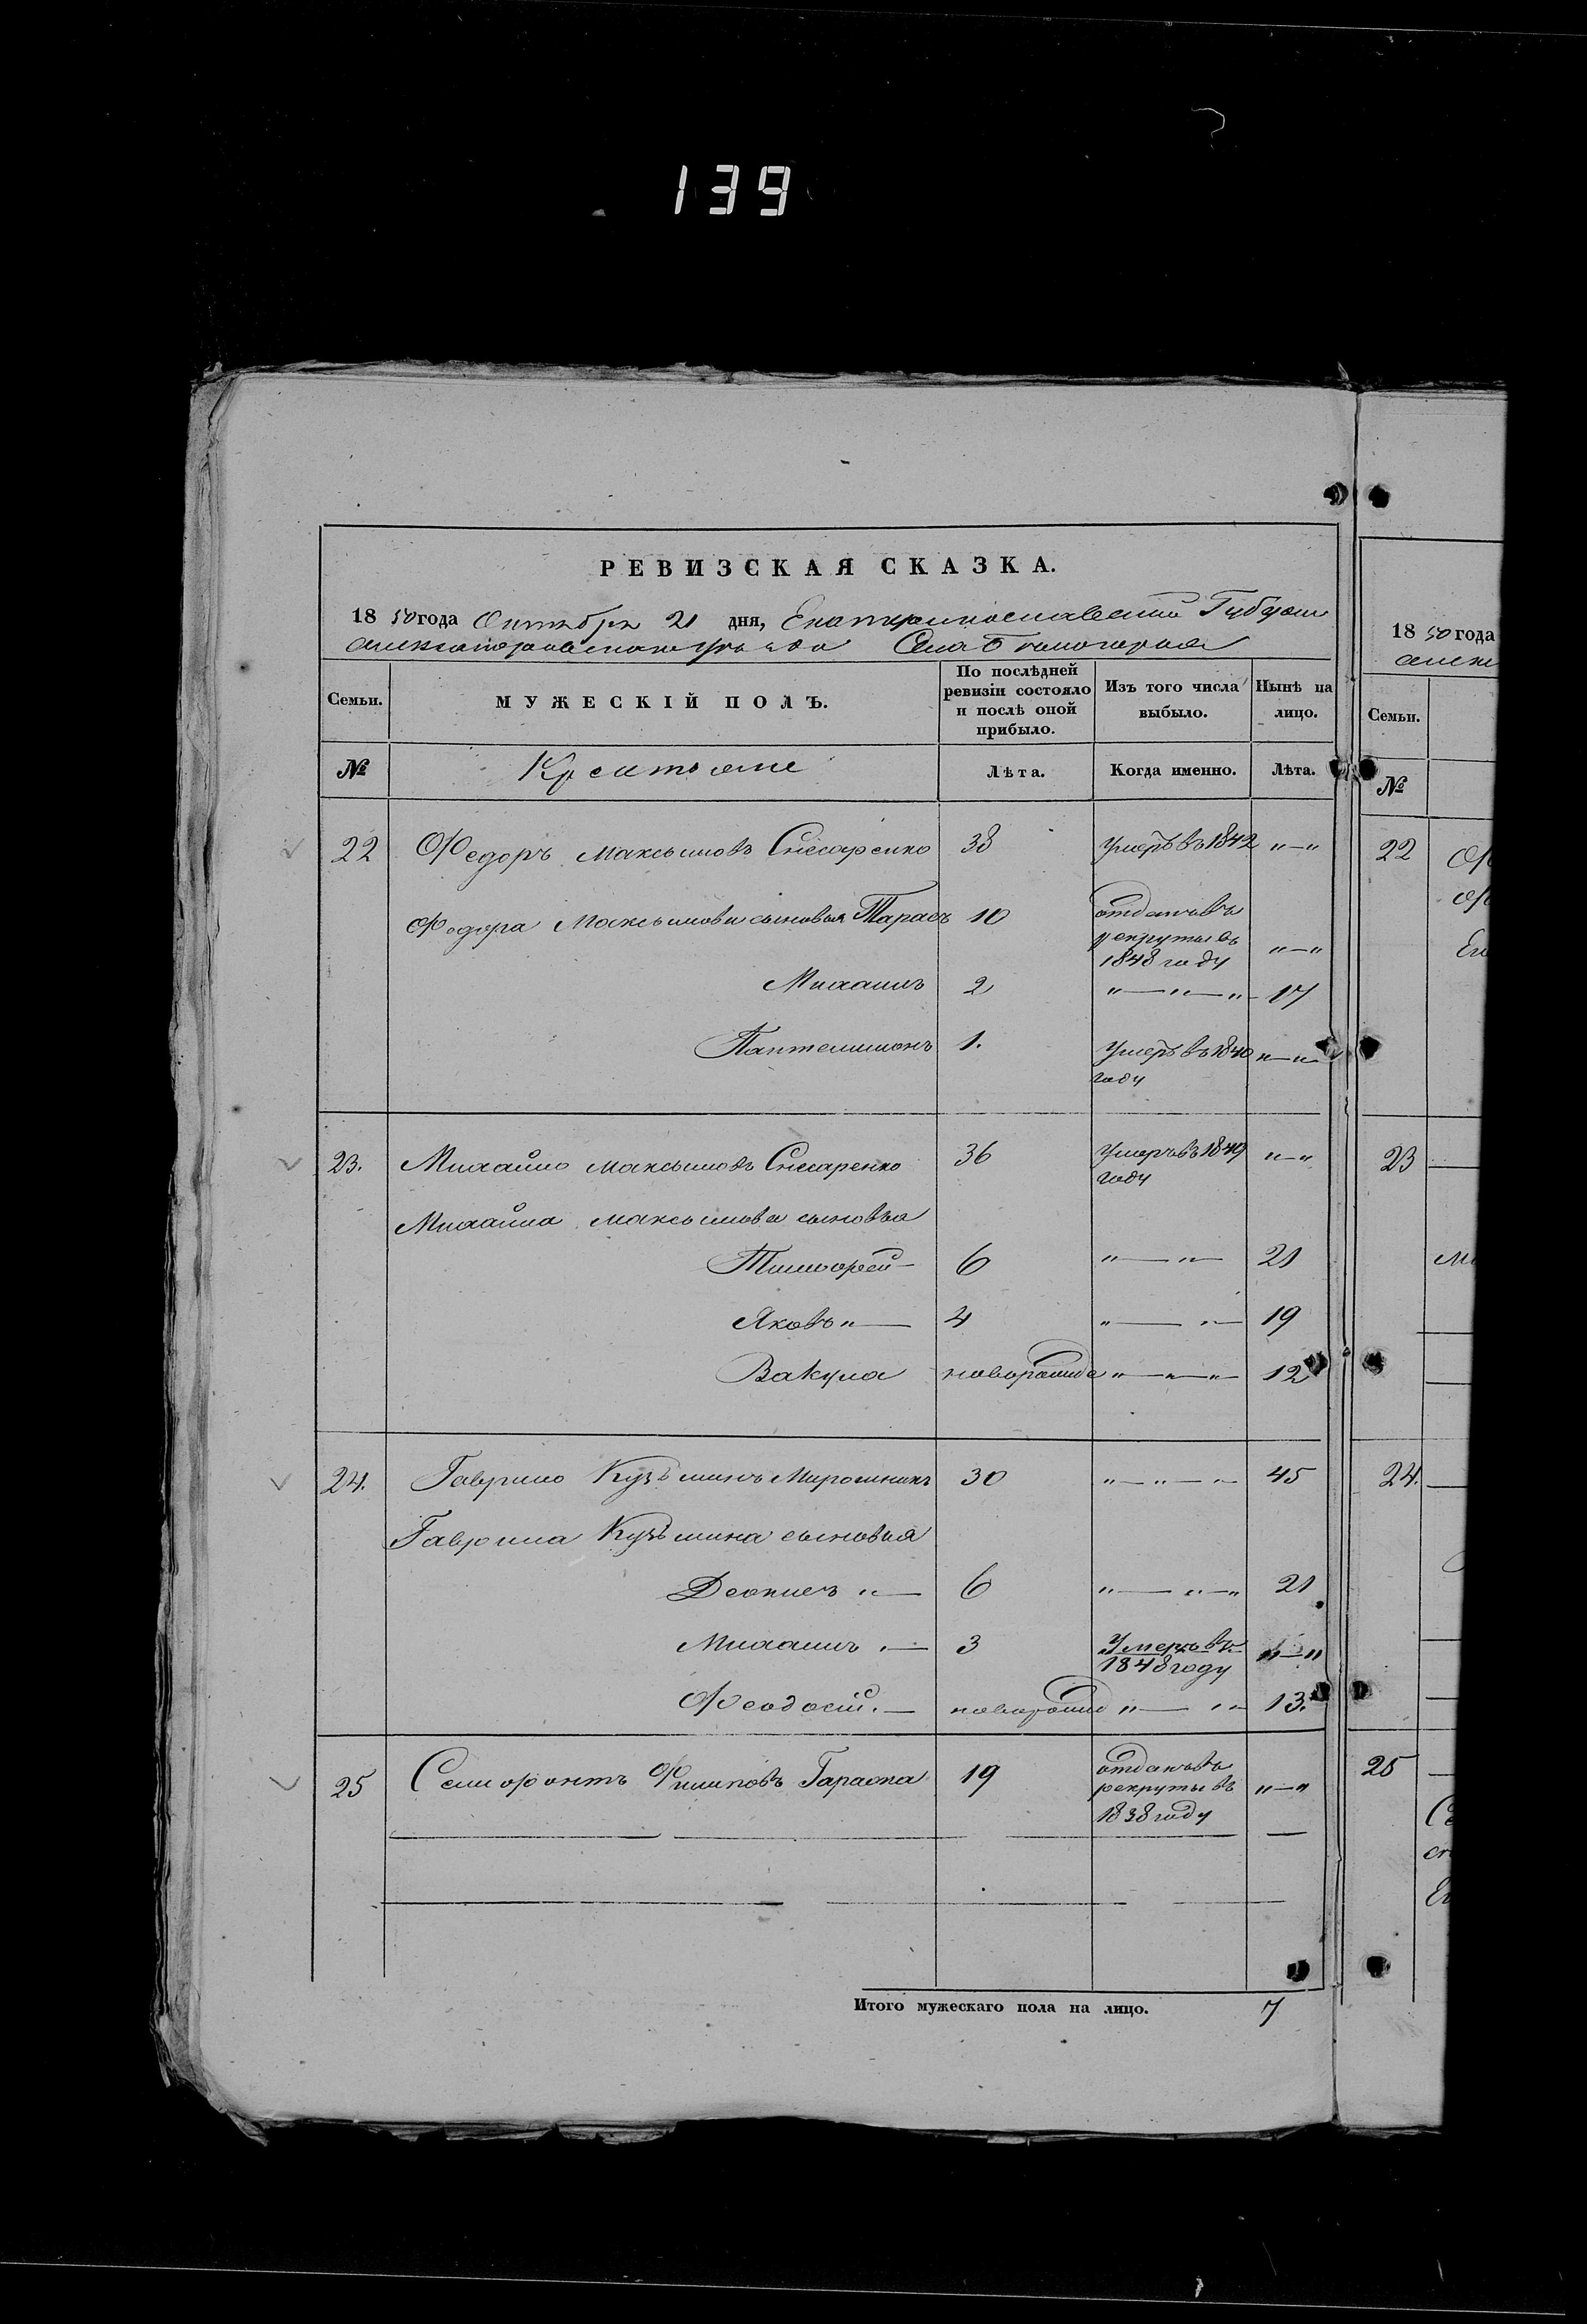 139
РЕВИЗСКАЯ СКАЗКА.
1850 года Октября 21 дня, Екатеринославской Губернии
Александровскаго уезда Села Белогорья
Семьи.
МУЖЕСКІЙ ПОЛЪ.
По послѣдней ревизіи состояло и послѣ оной прибыло.
Изъ того числа выбыло.
Нынѣ на лицо.
№ Крестьяне Лѣта. Когда именно. Лѣта.
22 Федоръ Максимовъ Снесаренко 38 умеръ въ 1842 "—"
Федора Максимова сыновья Тарасъ 10 отданъ въ рекруты въ 1848 году "—"
Михаилъ 2 "—"—" 17
Пантелимонъ 1. умеръ въ 1840 году "—"
23. Михайло Максимовъ Снесаренко 36 умеръ въ 1849 году "—"
Михайла Максимова сыновья
Тимофей 6 "—"— 21
Яковъ "— 4 "—"— 19
Вакула новорожде "—"—" 12
24. Гаврило Кузьминъ Мирошникъ 30 "—"—"— 45
Гаврила Кузьмина сыновья
Деонисъ "— 6 "—"—" 21
Михаилъ "— 3 Умеръ въ 1848 году "—"
Феодосій. — новорожд "—"— 13.
25 Селифонтъ Филиповъ Гараска 19 отданъ въ рекруты въ 1838 году "—"
Итого мужескаго пола на лицо. 7
1850 года
Семьи.
№
22
23
24.
25